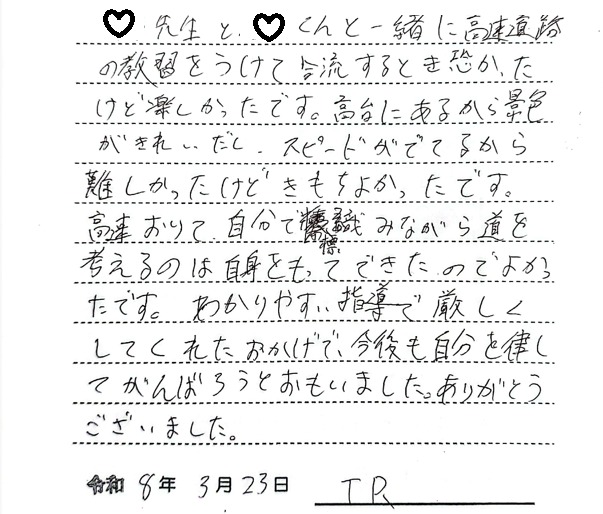 ♡先生と、♡くんと一緒に高速道路
の教習をうけて合流するとき恐かった
けど楽しかったです。高台にあるから景色
がきれいだし、スピードがでてるから
難しかったけどきもちよかったです。
高速おりて自分で標識みながら道を
考えるのは自身をもってできたのでよかっ
たです。わかりやすい指導で厳しく
してくれたおかげで、今後も自分を律し
てがんばろうとおもいました。ありがとう
ございました。
令和8年3月23日 TR